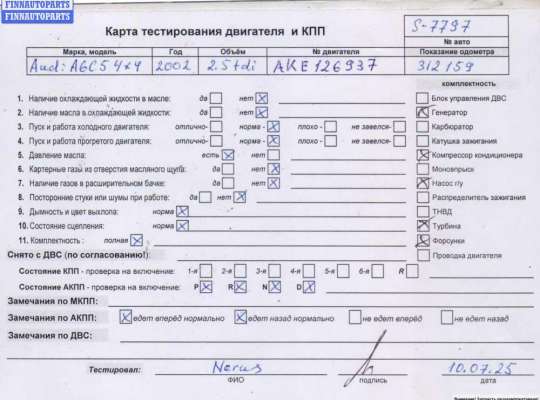 FINNAUTOPARTS
FINNAUTOPARTS
Карта тестирования двигателя и КПП
S-7797
№ авто
Марка, модель Год Объём № двигателя Показание одометра
Audi A6C5 4x4 2002 2.5tdi AKE126937 312 159
комплектность
1. Наличие охлаждающей жидкости в масле: да нет Блок управления ДВС
2. Наличие масла в охлаждающей жидкости: да нет Генератор
3. Пуск и работа холодного двигателя: отлично- норма - плохо - не завелся- Карбюратор
4. Пуск и работа прогретого двигателя: отлично- норма - плохо - не завелся- Катушка зажигания
5. Давление масла: есть нет Компрессор кондиционера
6. Картерные газы из отверстия масляного щупа: да нет Моновпрыск
7. Наличие газов в расширительном бачке: да нет Насос г/у
8. Посторонние стуки или шумы при работе: да нет Распределитель зажигания
9. Дымность и цвет выхлопа: норма ТНВД
10. Состояние сцепления: норма Турбина
11. Комплектность : полная Форсунки
Снято с ДВС (по согласованию!): Проводка двигателя
Состояние КПП - проверка на включение: 1-я 2-я 3-я 4-я 5-я 6-я R
Состояние АКПП - проверка на включение: P R N D
Замечания по МКПП:
Замечания по АКПП: едет вперёд нормально едет назад нормально не едет вперёд не едет назад
Замечания по ДВС:
Тестировал: 10.07.25
ФИО подпись дата